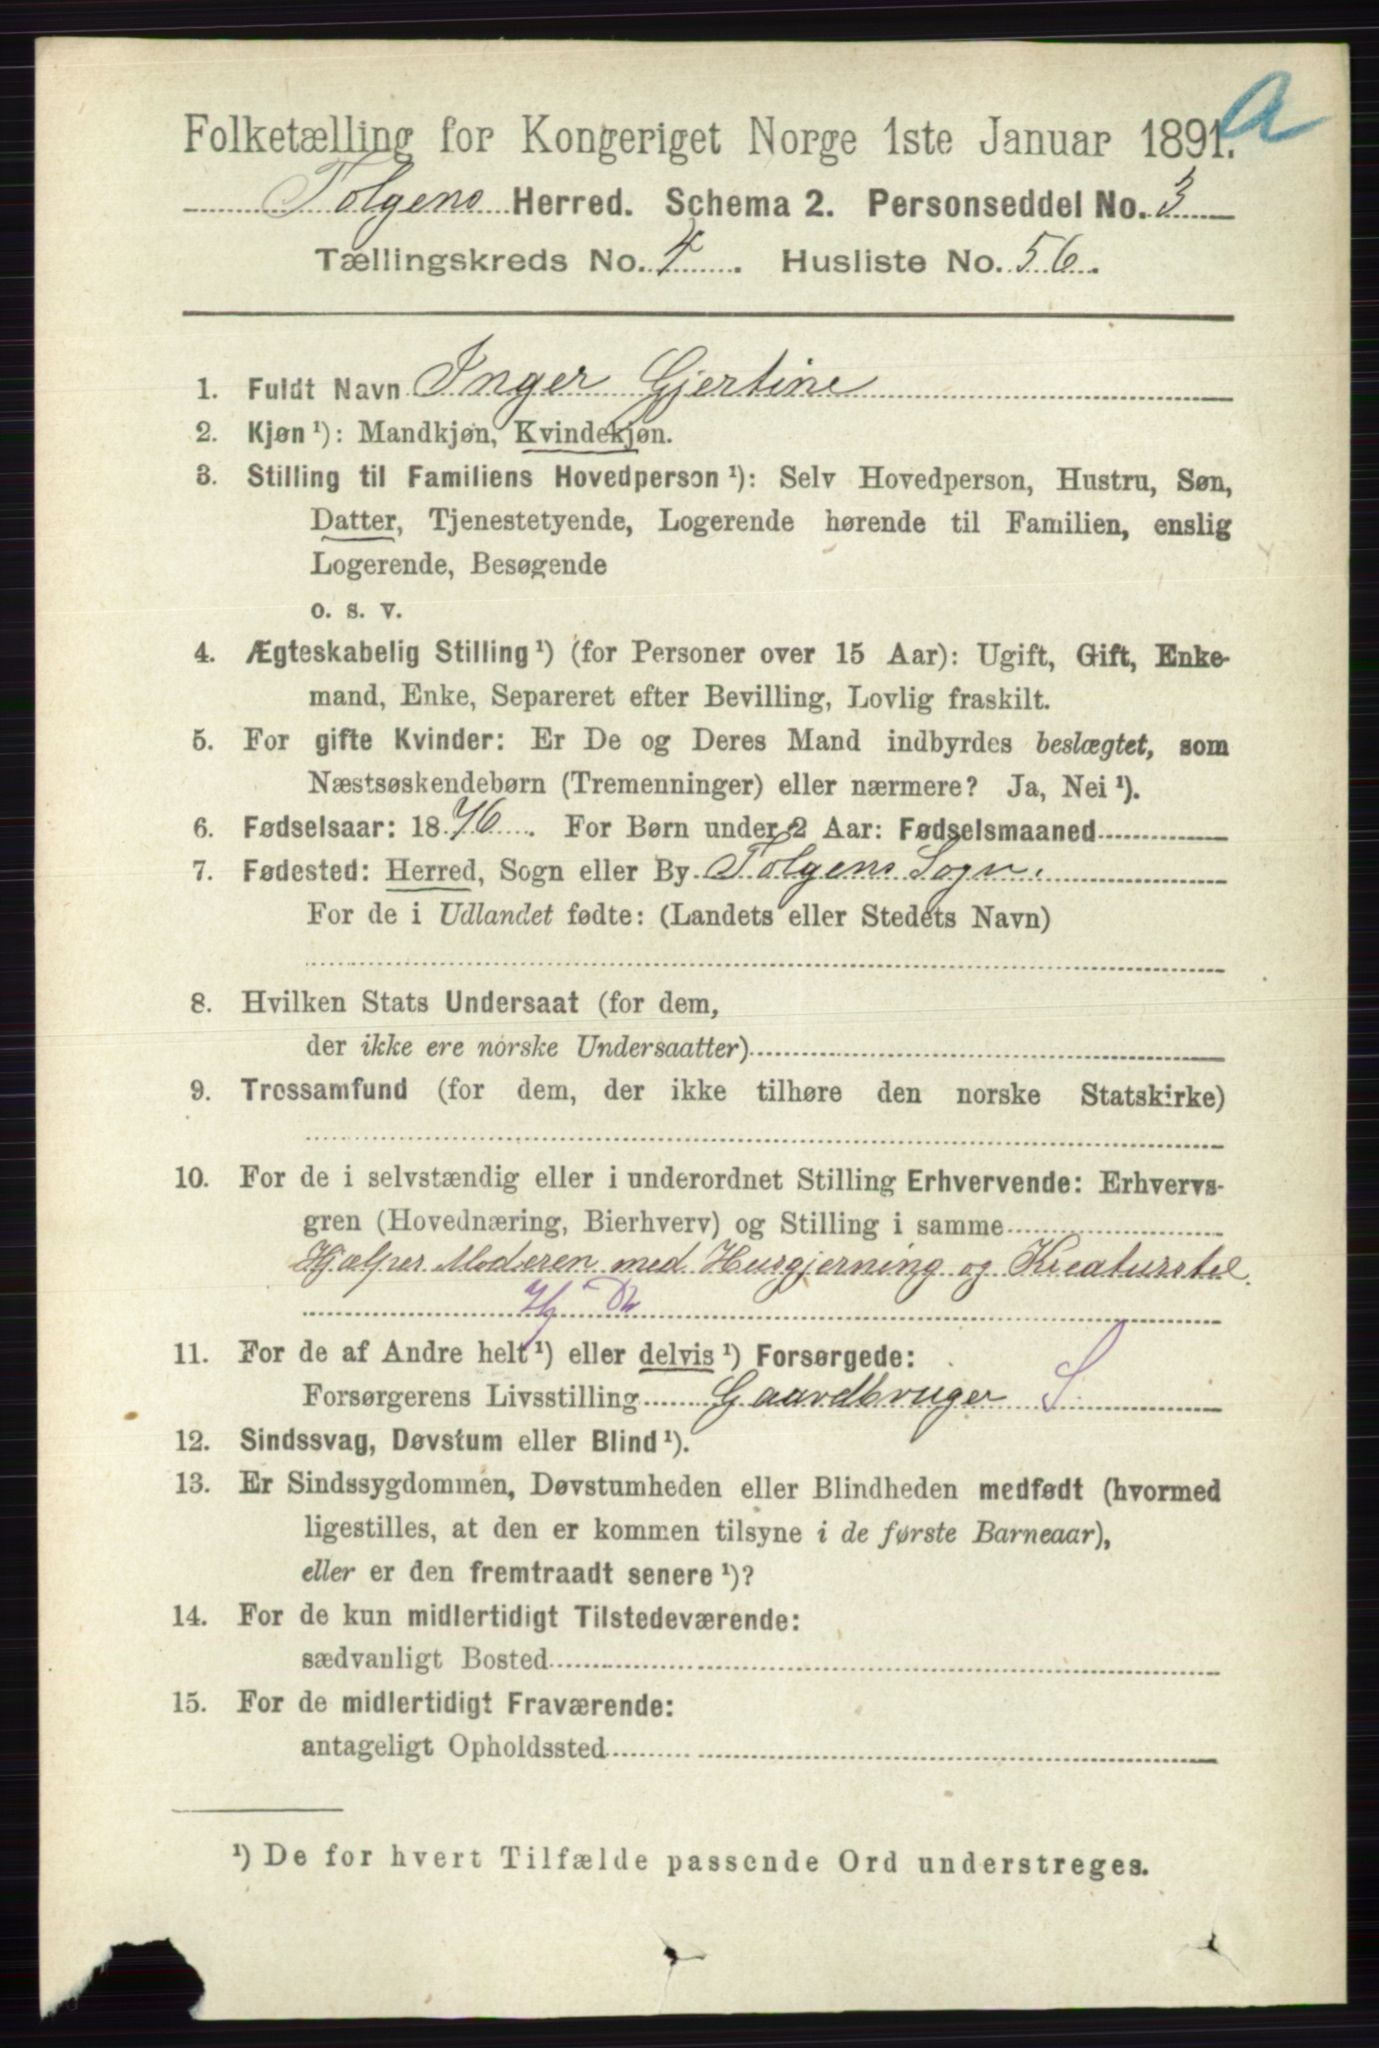 a
Folketælling for Kongeriget Norge 1ste Januar 1891.
Tolgens Herred. Schema 2. Personseddel No. 3
Tællingskreds No. 4. Husliste No. 56.
1. Fuldt Navn Inger Gjertine
2. Kjøn ¹): Mandkjøn, Kvindekjøn.
3. Stilling til Familiens Hovedperson ¹): Selv Hovedperson, Hustru, Søn,
Datter, Tjenestetyende, Logerende hørende til Familien, enslig
Logerende, Besøgende
o. s. v.
4. Ægteskabelig Stilling ¹) (for Personer over 15 Aar): Ugift, Gift, Enke-
mand, Enke, Separeret efter Bevilling, Lovlig fraskilt.
5. For gifte Kvinder: Er De og Deres Mand indbyrdes beslægtet, som
Næstsøskendebørn (Tremenninger) eller nærmere? Ja, Nei ¹).
6. Fødselsaar: 1876. For Børn under 2 Aar: Fødselsmaaned
7. Fødested: Herred, Sogn eller By Tolgens Sogn.
For de i Udlandet fødte: (Landets eller Stedets Navn)
8. Hvilken Stats Undersaat (for dem,
der ikke ere norske Undersaatter)
9. Trossamfund (for dem, der ikke tilhøre den norske Statskirke)
10. For de i selvstændig eller i underordnet Stilling Erhvervende: Erhvervs-
gren (Hovednæring, Bierhverv) og Stilling i samme
Hjælper Moderen med Husgjerning og Kreaturstel.
11. For de af Andre helt ¹) eller delvis ¹) Forsørgede:
Forsørgerens Livsstilling Gaardbruger S.
12. Sindssvag, Døvstum eller Blind ¹).
13. Er Sindssygdommen, Døvstumheden eller Blindheden medfødt (hvormed
ligestilles, at den er kommen tilsyne i de første Barneaar),
eller er den fremtraadt senere ¹)?
14. For de kun midlertidigt Tilstedeværende:
sædvanligt Bosted
15. For de midlertidigt Fraværende:
antageligt Opholdssted
¹) De for hvert Tilfælde passende Ord understreges.